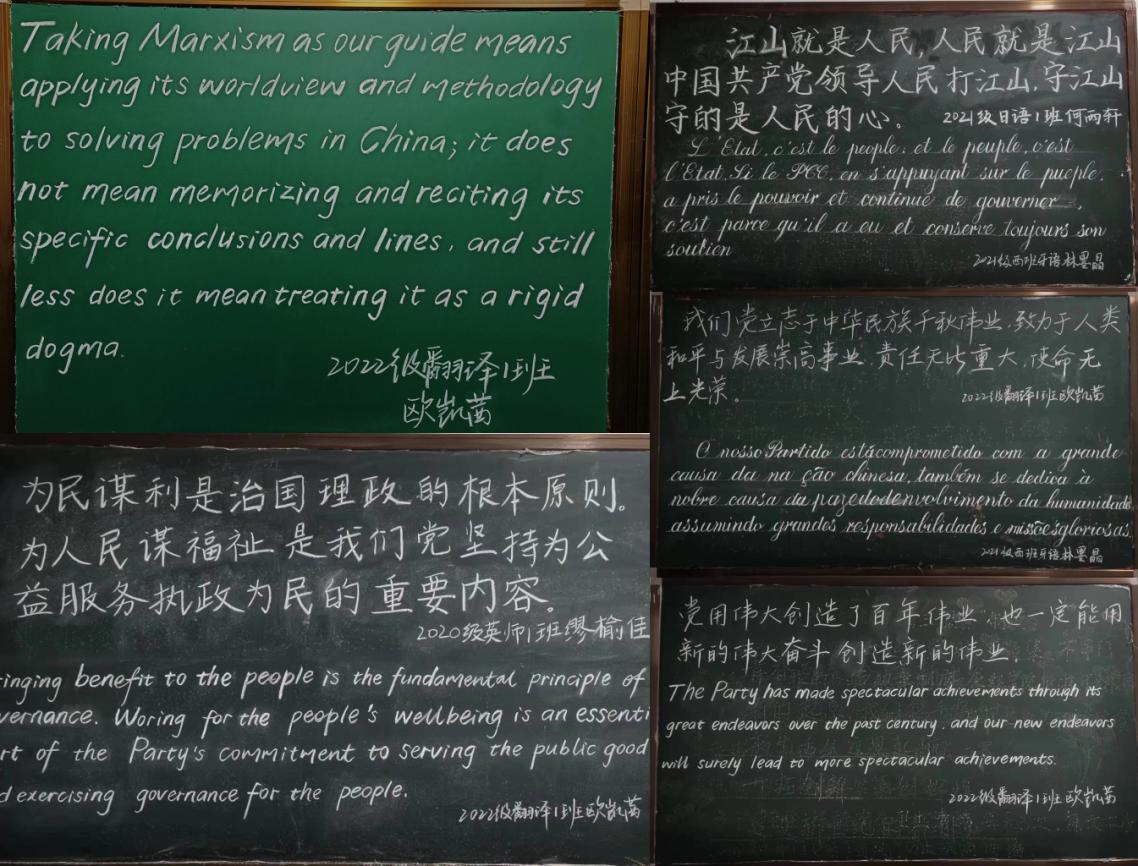 Taking Marxism as our guide means
applying its worldview and methodology
to solving problems in China; it does
not mean memorizing and reciting its
specific conclusions and lines, and still
less does it mean treating it as a rigid
dogma.
2022级翻译1班
欧凯茜
为民谋利是治国理政的根本原则。
为人民谋福祉是我们党坚持为公
益服务执政为民的重要内容。
2020级英师1班缪榆佳
inging benefit to the people is the fundamental principle of
vernance. Woring for the people's wellbeing is an essenti
rt of the Party's commitment to serving the public good
d exercising governance for the people.
2022级翻译1班欧凯茜
江山就是人民,人民就是江山
中国共产党领导人民打江山,守江山
守的是人民的心。 2021级日语1班何雨轩
L'Etat, c'est le people; et le peuple, c'est
l'Etat. Si le PCC, en s'appuyant sur le pueple,
a pris le pouvoir et continue de gouverner,
c'est parce qu'il a eu et conserve toujours son
soutien
2021级西班牙语林墨晶
我们党立志于中华民族千秋伟业,致力于人类
和平与发展崇高事业,责任无比重大,使命无
上光荣。
2022级翻译1班欧凯茜
O nosso Partido estácomprometido com a grande
causa da na ção chinesa, também se dedica à
nobre causa da pazedodenvolvimento da humanidade
assumindo grandes responsabilidades e missõesgloriosas.
2021级西班牙语林墨晶
党用伟大创造了百年伟业,也一定能用
新的伟大奋斗创造新的伟业.
The Party has made spectacular achievements through its
great endeavors over the past century, and our new endeavors
will surely lead to more spectacular achievements.
2022级翻译1班欧凯茜